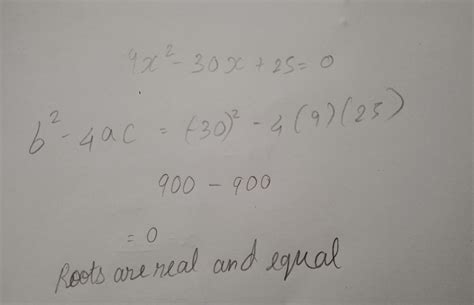 9x² - 30x + 25 = 0
b² - 4ac = (-30)² - 4(9)(25)
900 - 900
= 0
Roots are real and equal